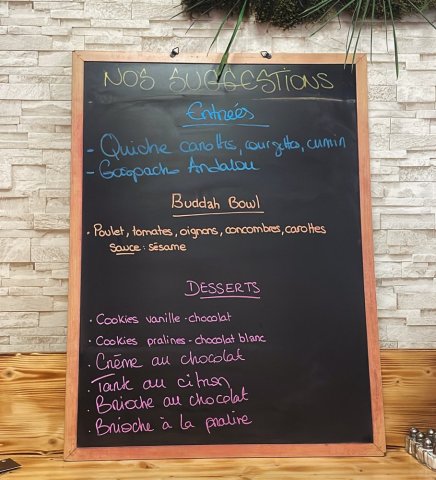 NOS SUGGESTIONS
Entrées
- Quiche carottes, courgettes, cumin
- Gaspacho Andalou
BUDDAH BOWL
- Poulet, tomates, oignons, concombres, carottes
Sauce : sésame
DESSERTS
- Cookies vanille - chocolat
- Cookies pralines - chocolat blanc
- Crème au chocolat
- Tarte au citron
- Brioche au chocolat
- Brioche à la praline